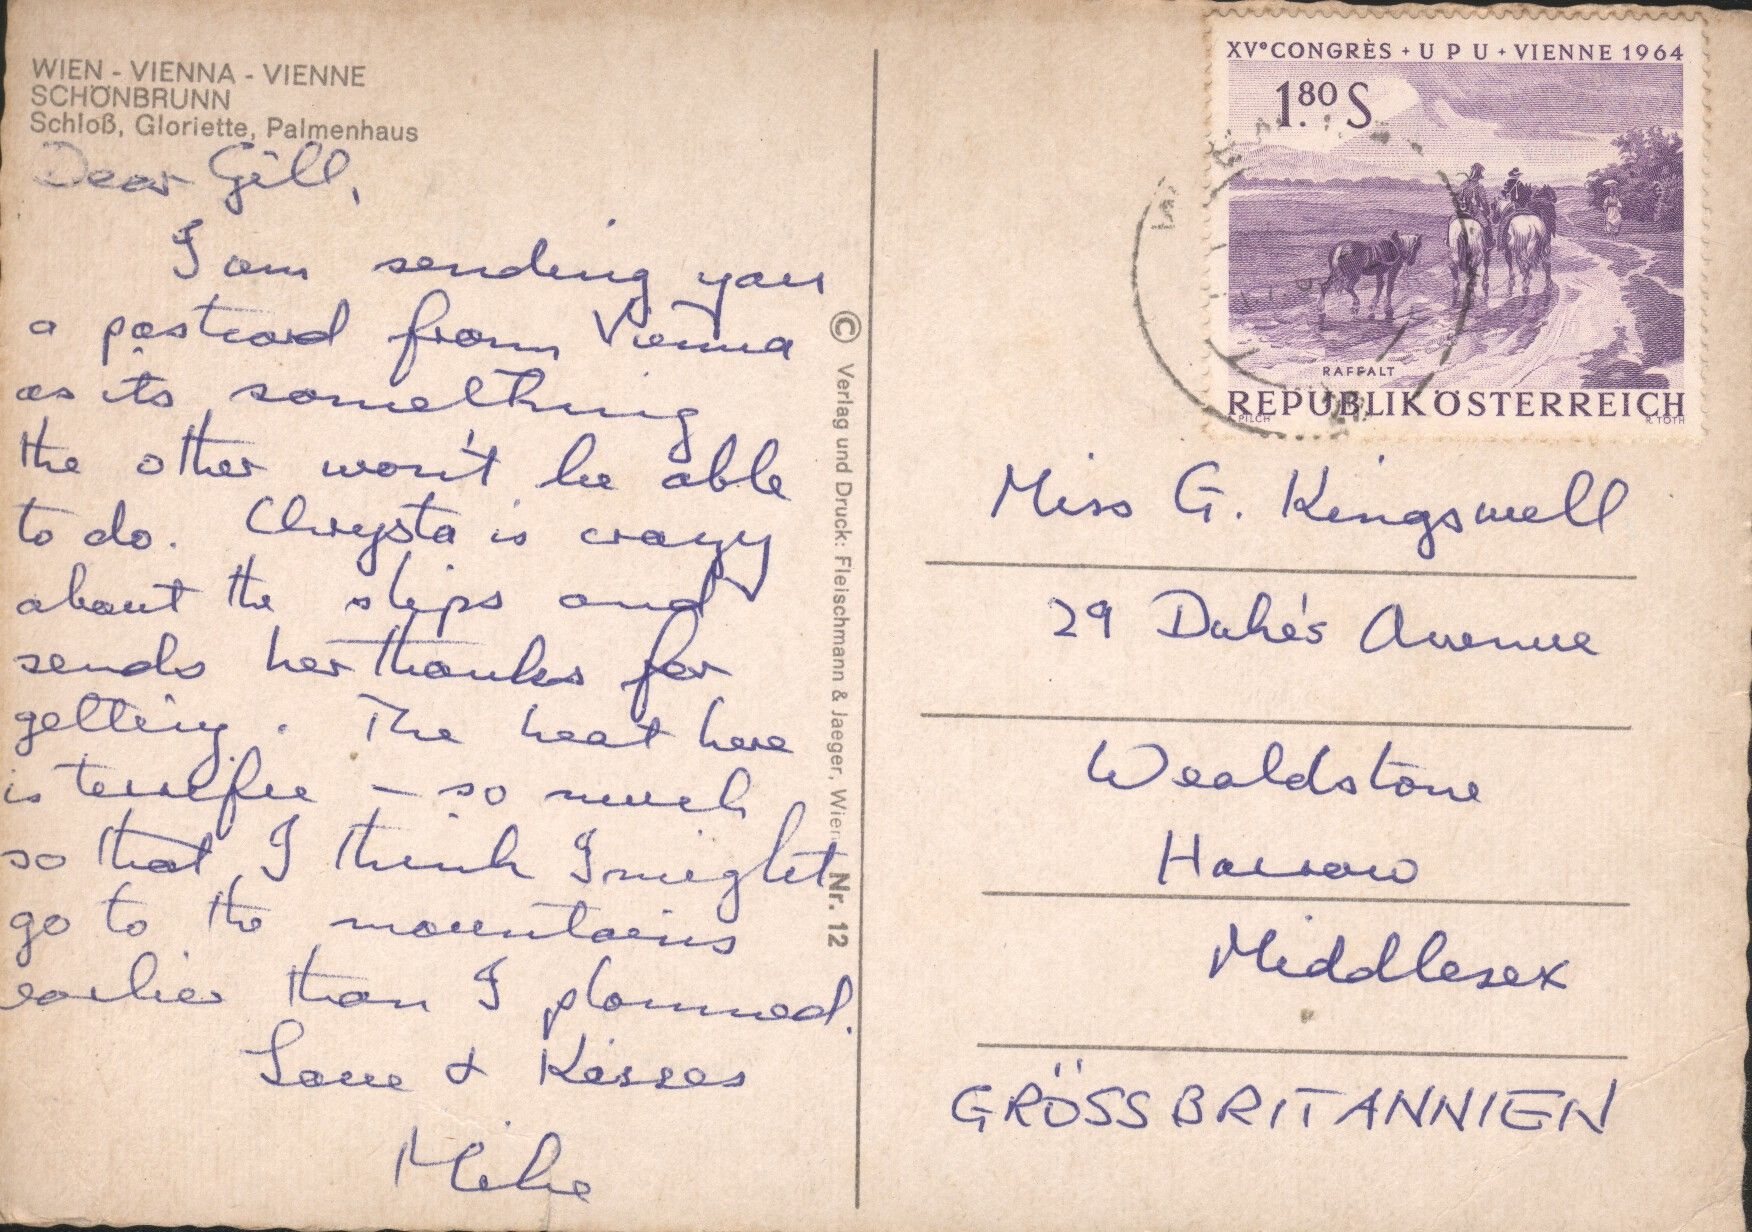 WIEN - VIENNA - VIENNE
SCHÖNBRUNN
Schloß, Gloriette, Palmenhaus
Dear Gill,
I am sending you
a postcard from Vienna
as its something
the other won't be able
to do. Chrysta is crazy
about the slips and
sends her thanks for
getting. The heat here
is terrific - so much
so that I think I might
go to the mountains
earlier than I planned.
Love & Kisses
Mike
© Verlag und Druck: Fleischmann & Jaeger, Wien Nr. 12
XVᵉ CONGRÈS + UPU + VIENNE 1964
1.80 S
RAFFALT
REPUBLIK ÖSTERREICH
PILCH R. TOTH
Miss G. Kingswell
29 Duke's Avenue
Wealdstone
Harrow
Middlesex
GRÖSSBRITANNIEN